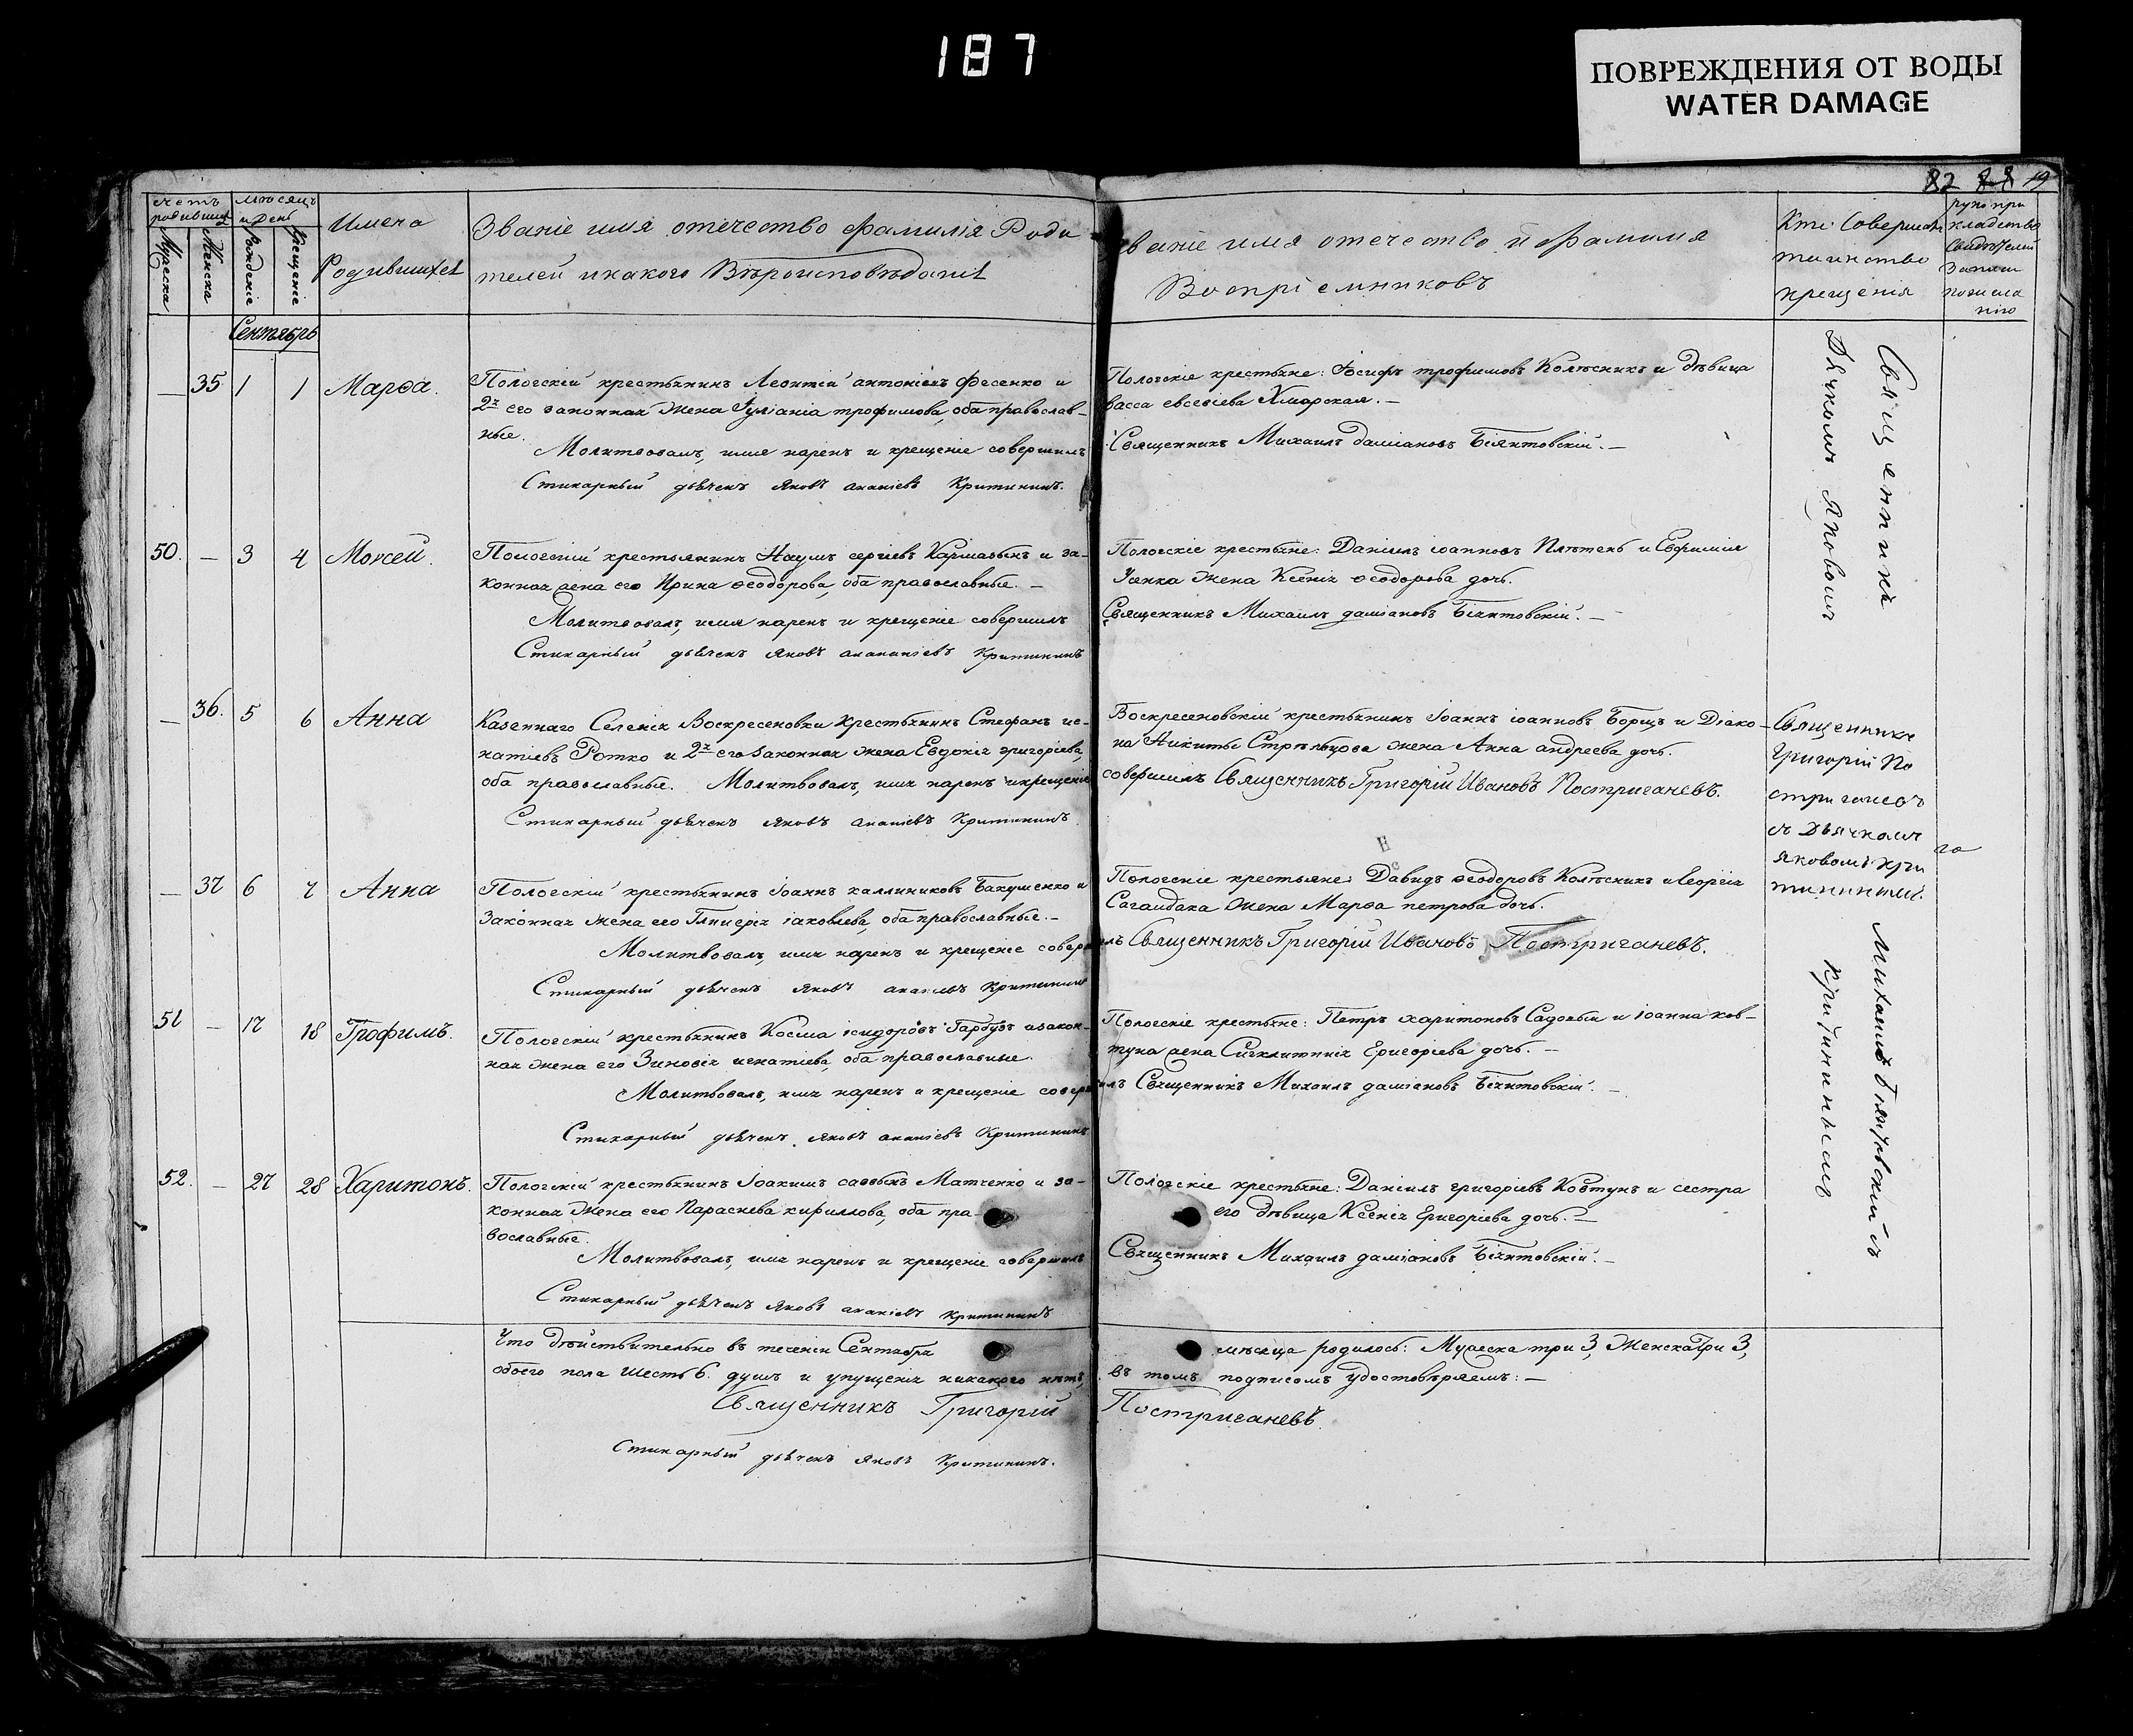 187
ПОВРЕЖДЕНИЯ ОТ ВОДЫ
WATER DAMAGE
82 88 19
Счетъ родившихся
мѣсяцъ и день
Мужеска
Женска
Рожденіе
Крещеніе
Имена Родившихся
Званіе имя отечество фамилія Роди-
телей и какого Вѣроисповѣданія
Званіе имя отечество и фамилія
Воспріемниковъ
Кто Совершалъ
таинство
крещенія
рукопри
кладство
свидѣтелей
записи
по жела
нію
Сентябрь
— 35 1 1 Марѳа.
Пологскій крестьянинъ Леонтій антоніевъ Фесенко и
2я его законная жена Іуліанія трофимова, оба православ-
ные.
Молитвовалъ, имя нарекъ и крещеніе совершилъ
Стихарный дьячекъ Яковъ ананіевъ Критининъ.
Пологскіе крестьяне: Іосифъ трофимовъ Колѣсникъ и дѣвица
васса евсевіева Хмарская. —
Священникъ Михаилъ даміановъ Біянтовскій. —
50. — 3 4 Моѵсей.
Пологскій крестьянинъ Наумъ сергіевъ Кармазынъ и за-
конная жена его Ирина ѳеодорова, оба православные. —
Молитвовалъ, имя нарекъ и крещеніе совершилъ
Стихарный дьячекъ Яковъ ананіевъ Критининъ
Пологскіе крестьяне: Даніилъ іоанновъ Плѣтень и Евфимія
Усенка жена Ксенія ѳеодорова дочь.
Священникъ Михаилъ даміановъ Біянтовскій. —
— 36. 5 6 Анна
Казеннаго Селенія Воскресеновки крестьянинъ Стефанъ иг-
натіевъ Ротко и 2я его законная жена Евдокія григоріева,
оба православные. Молитвовалъ, имя нарекъ и крещеніе
Стихарный дьячекъ Яковъ ананіевъ Критининъ
Воскресеновскій крестьянинъ Іоаннъ іоанновъ Борщъ и Діако-
на Никиты Стрѣльцова жена Анна андреева дочь.
совершилъ Священникъ Григорій Ивановъ Постригачевъ.
Священникъ
Григорій По
стригачевъ
съ дьячкомъ
Яковомъ Кри
тининымъ.
— 37 6 7 Анна
Пологскій крестьянинъ Іоаннъ каллиниковъ Бакушенко и
законная жена его Гликерія іаковлева, оба православные. —
Молитвовалъ, имя нарекъ и крещеніе соверши
Стихарный дьячекъ Яковъ ананіевъ Критининъ
Пологскіе крестьяне: Давидъ ѳеодоровъ Колѣсникъ и Георгія
Сагайдака жена Марѳа петрова дочь.
лъ Священникъ Григорій Ивановъ Постригачевъ.
51 — 17 18 Трофимъ.
Пологскій крестьянинъ Косма ісидоровъ Гарбузъ и закон-
ная жена его Зиновія игнатіева, оба православные.
Молитвовалъ, имя нарекъ и крещеніе соверши
Стихарный дьячекъ Яковъ ананіевъ Критининъ
Пологскіе крестьяне: Петръ харитоновъ Садовый и іоанна ков-
туна жена Сигклитикія Григоріева дочь. —
лъ Священникъ Михаилъ даміановъ Біянтовскій. —
52. — 27 28 Харитонъ.
Пологскій крестьянинъ Іоакимъ саввынъ Матченко и за-
конная жена его Параскева кириллова, оба пра-
вославные.
Молитвовалъ, имя нарекъ и крещеніе совершилъ
Стихарный дьячекъ Яковъ ананіевъ Критининъ
Пологскіе крестьяне: Даніилъ григоріевъ Ковтунъ и сестра
его дѣвица Ксенія Григоріева дочь. —
Священникъ Михаилъ даміановъ Біянтовскій. —
Священникъ Михаилъ Біянтовскій съ
Дьячкомъ Яковомъ Критининымъ
Что дѣйствительно въ теченіи Сентября мѣсяца родилось: Мужеска три 3, Женска Три 3,
обоего пола шесть 6. душъ и упущенія никакого нѣтъ, въ томъ подписомъ удостовѣряемъ: —
Священникъ Григорій Постригачевъ.
Стихарный дьячекъ Яковъ Критининъ.